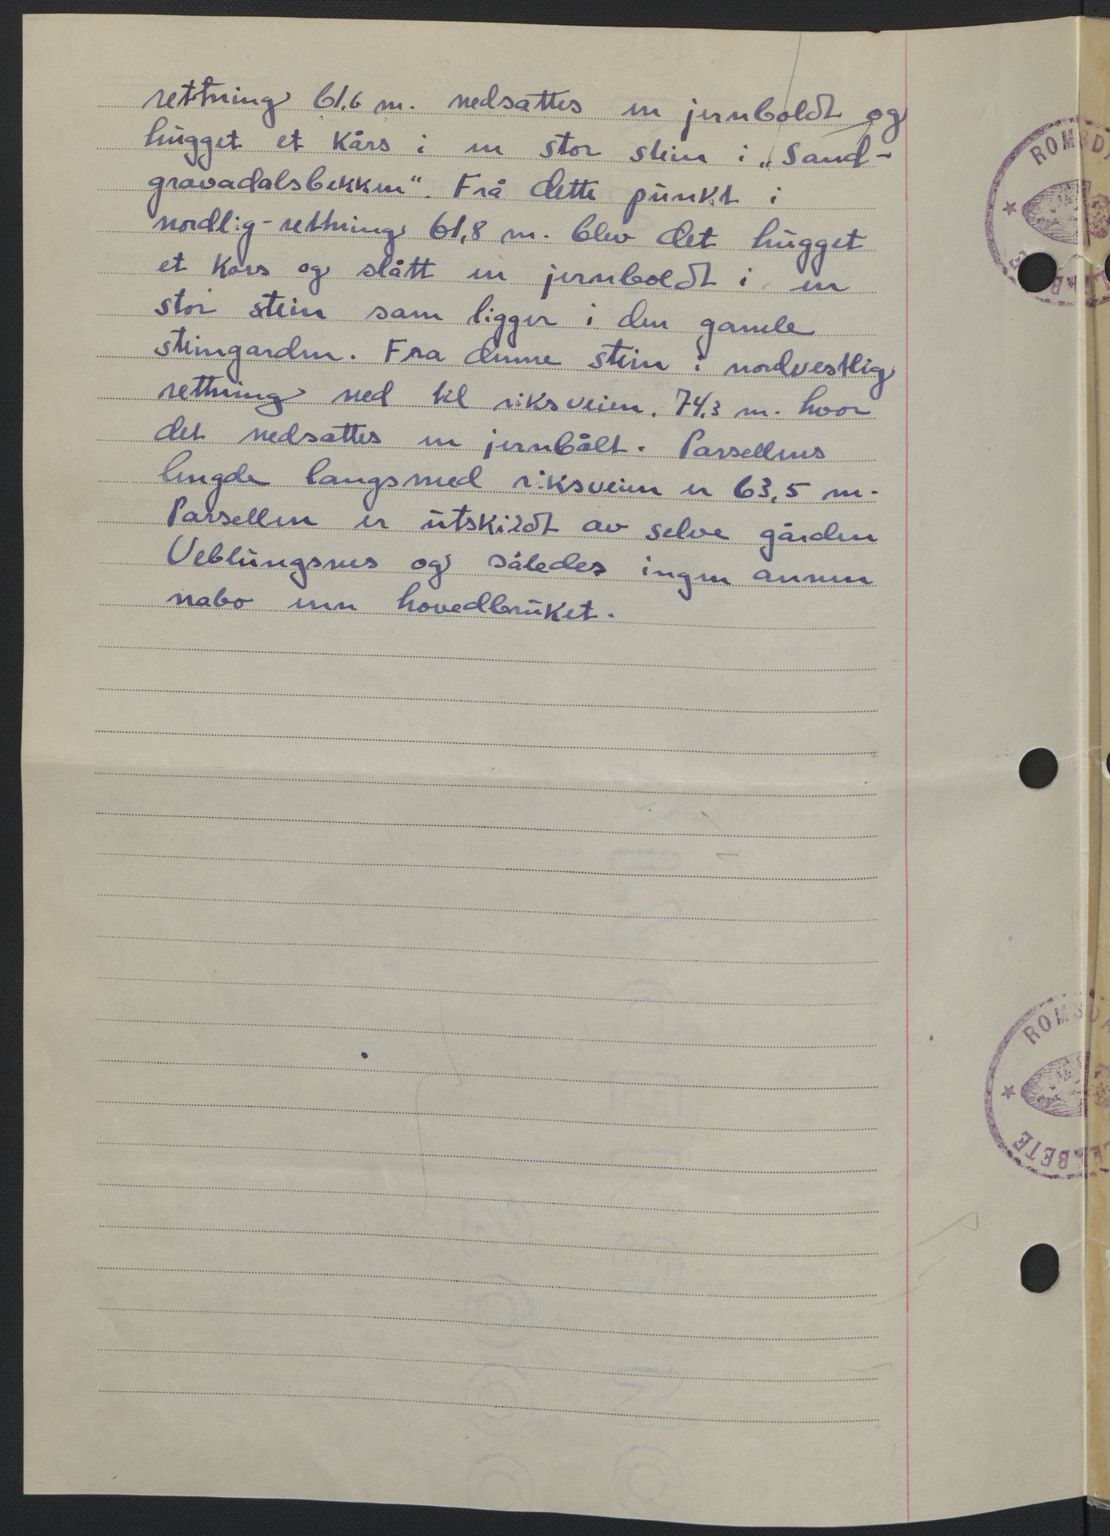 rettning 61,6 m. nedsattes en jernboldt og
hugget et kårs i en stor stein i „Sand-
gravadalsbekken“. Frå dette punkt i
nordlig-rettning 61,8 m. blev det hugget
et kårs og slått en jernboldt i en
stor stein som ligger i den gamle
steingarden. Fra denne stein i nordvestlig
rettning ned til riksveien. 74,3 m. hvor
det nedsattes en jernbålt. Parsellens
lengde langsmed riksveien er 63,5 m.
Parsellen er utskildt av selve gården
Veblungsnes og således ingen annen
nabo enn hovedbruket.
ROMSD
ROMSDA
BETE